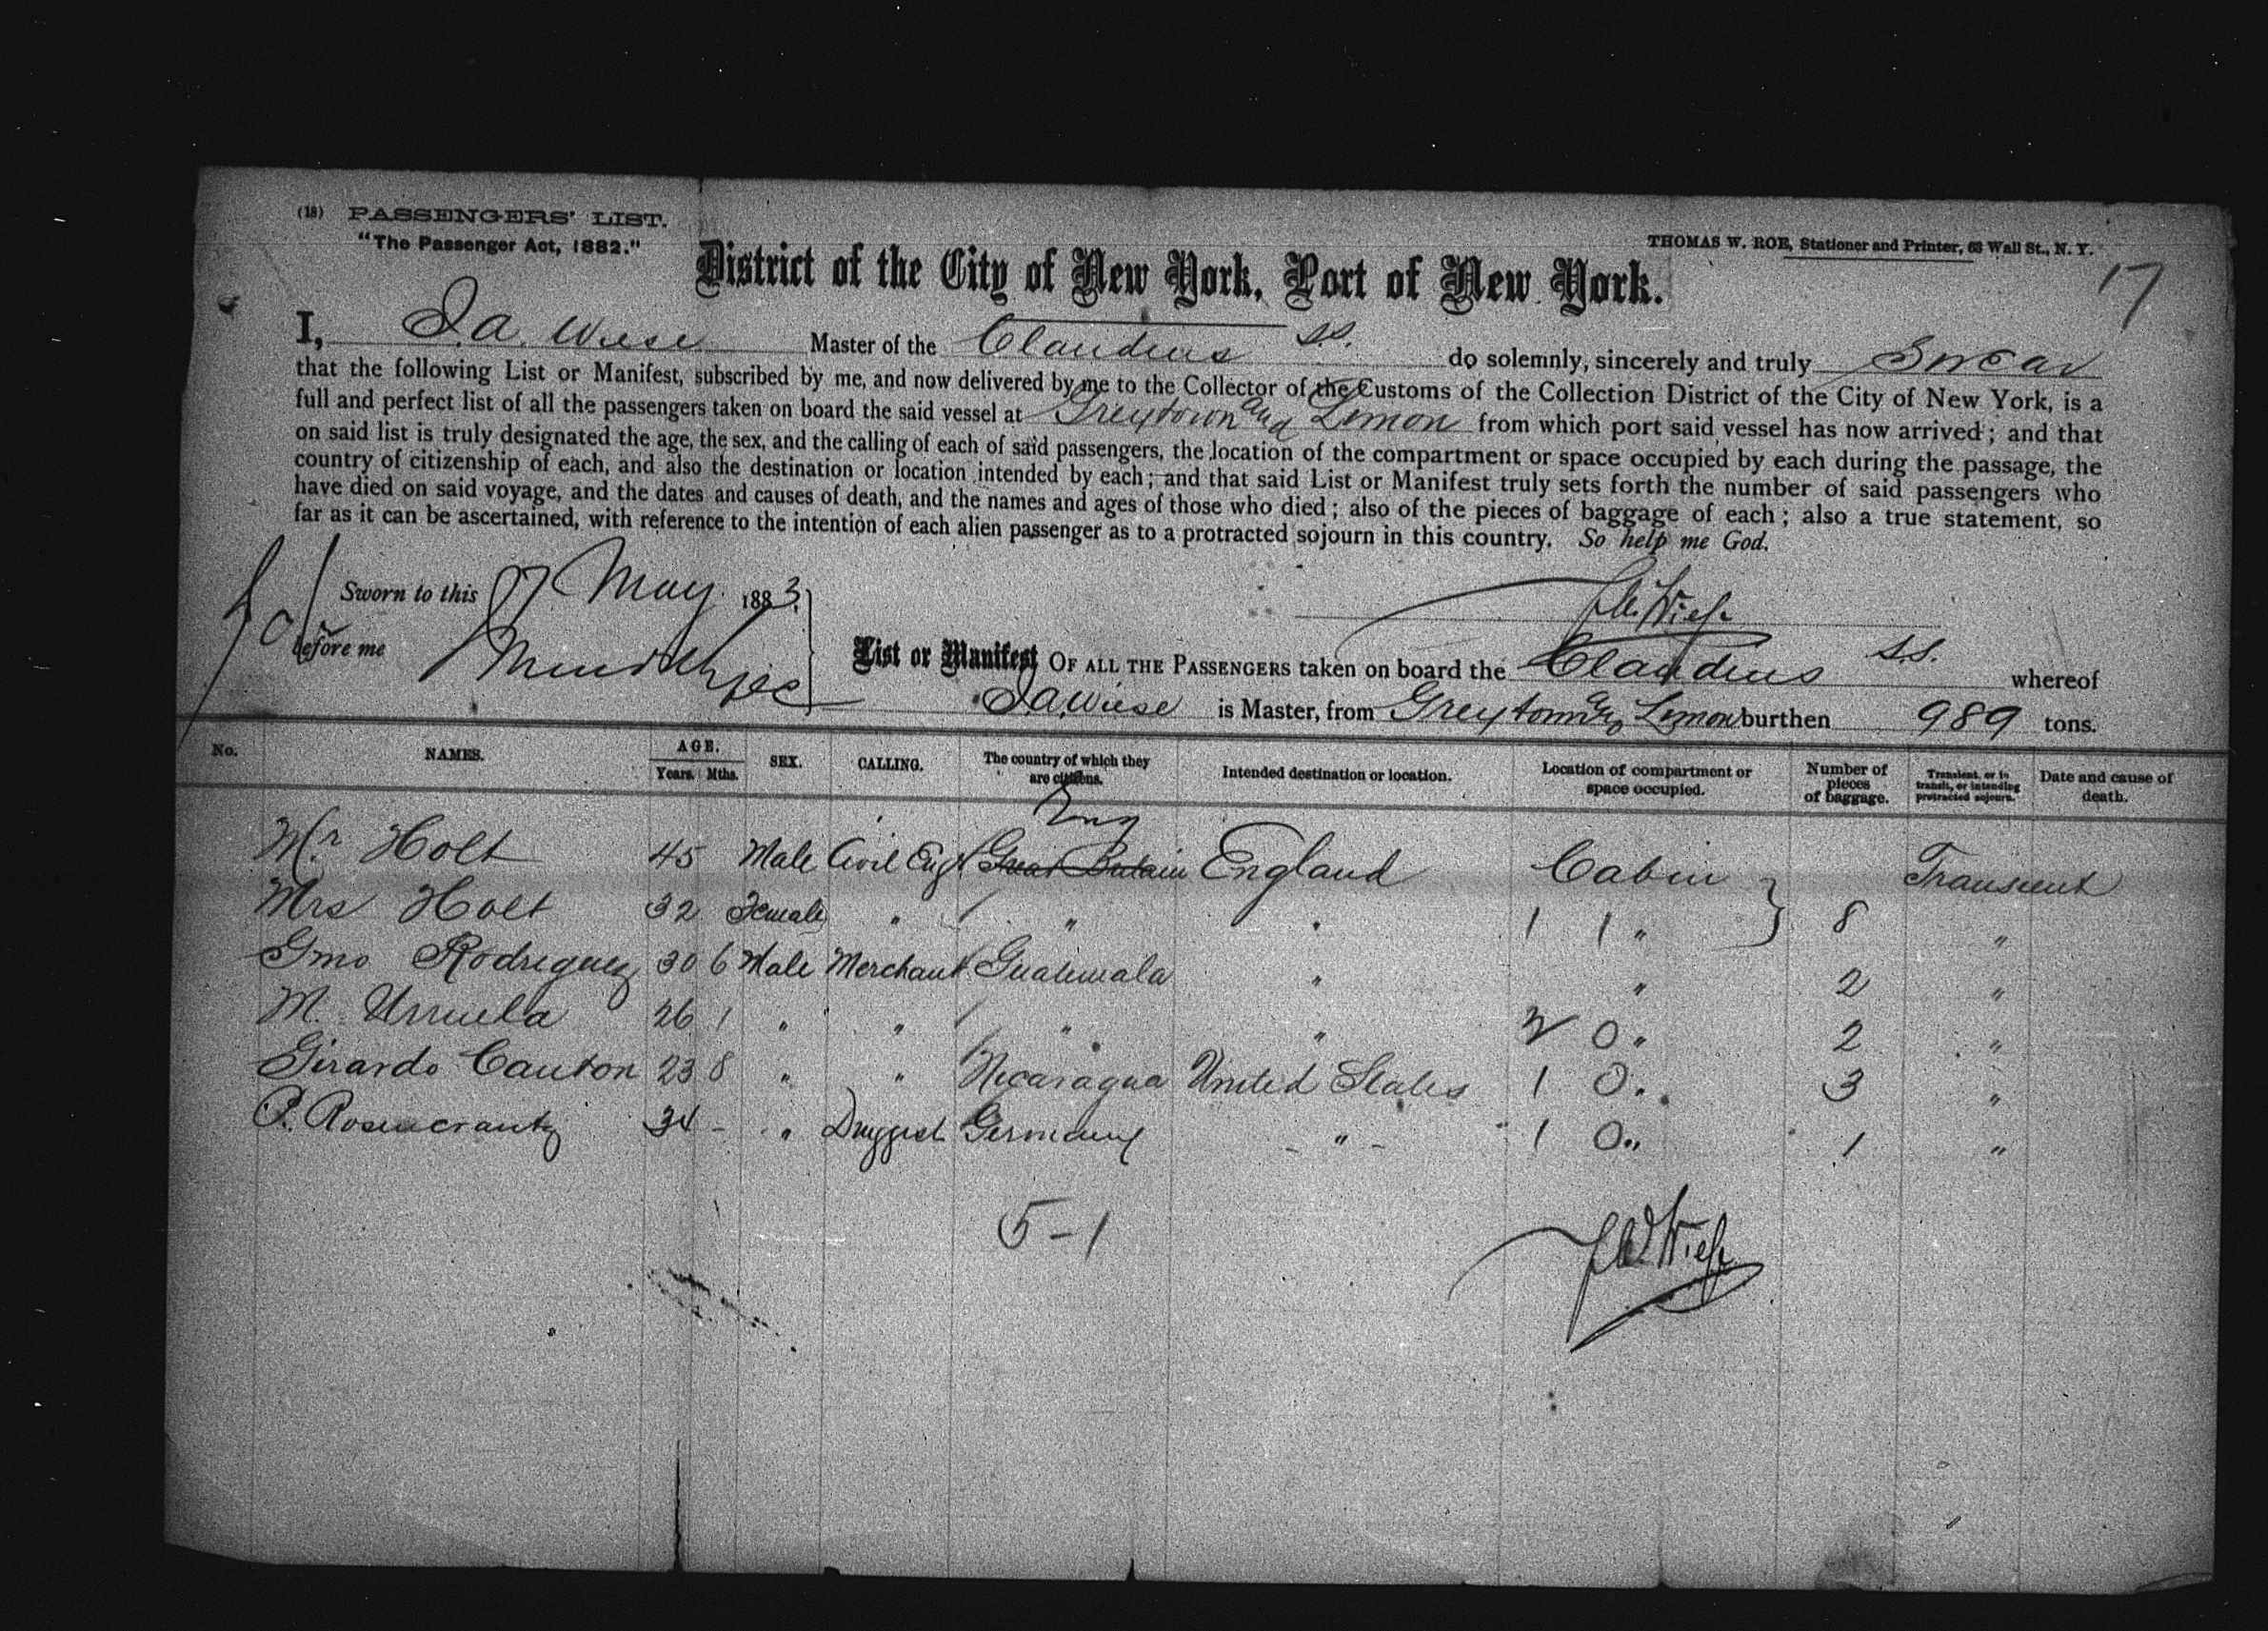 (18) PASSENGERS' LIST.
"The Passenger Act, 1882."
THOMAS W. ROE, Stationer and Printer, 63 Wall St., N. Y.
17
District of the City of New York, Port of New York.
I, J.A. Wiese Master of the Claudius S.S. do solemnly, sincerely and truly Swear
that the following List or Manifest, subscribed by me, and now delivered by me to the Collector of the Customs of the Collection District of the City of New York, is a
full and perfect list of all the passengers taken on board the said vessel at Greytown and Limon from which port said vessel has now arrived; and that
on said list is truly designated the age, the sex, and the calling of each of said passengers, the location of the compartment or space occupied by each during the passage, the
country of citizenship of each, and also the destination or location intended by each; and that said List or Manifest truly sets forth the number of said passengers who
have died on said voyage, and the dates and causes of death, and the names and ages of those who died; also of the pieces of baggage of each; also a true statement, so
far as it can be ascertained, with reference to the intention of each alien passenger as to a protracted sojourn in this country. So help me God.
Sworn to this 17 May 1883.
J.A. Wiese
before me
List or Manifest OF ALL THE PASSENGERS taken on board the Claudius S.S. whereof
J.A. Wiese is Master, from Greytown and Limon burthen 989 tons.
No. NAMES. AGE. Years. Mths. SEX. CALLING. The country of which they are citizens. Intended destination or location. Location of compartment or space occupied. Number of pieces of baggage. Transient, or in transit, or intending protracted sojourn. Date and cause of death.
Eng
Mr Holt 45 Male Civil Eng Great Britain England Cabin Transient
Mrs Holt 32 Female " " " 1 1 " 8 "
Gmo Rodriguez 30 6 Male Merchant Guatemala " " 2 "
M. Urruela 26 1 " " " " 2 0 " 2 "
Girardo Canton 23 8 " " Nicaragua United States 1 0 " 3 "
P. Rosencrantz 34 - " Druggist Germany - " - 1 0 " 1 "
5-1
J.A. Wiese